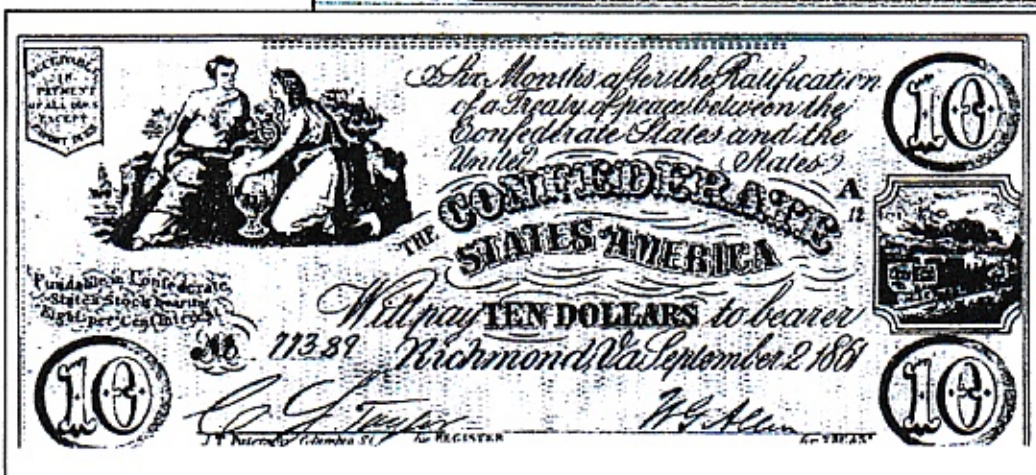 RECEIVABLE
IN
PAYMENT
OF ALL DUES
EXCEPT
Six Months after the Ratification
of a Treaty of peace between the
Confederate States and the
United States
10
A
12
THE CONFEDERATE
STATES AMERICA
Fundable in Confederate
States Stock bearing
Eight per Cent Interest
Will pay TEN DOLLARS to bearer
No 77389
Richmond, Va September 2 1861
10
10
for REGISTER
for TREASR